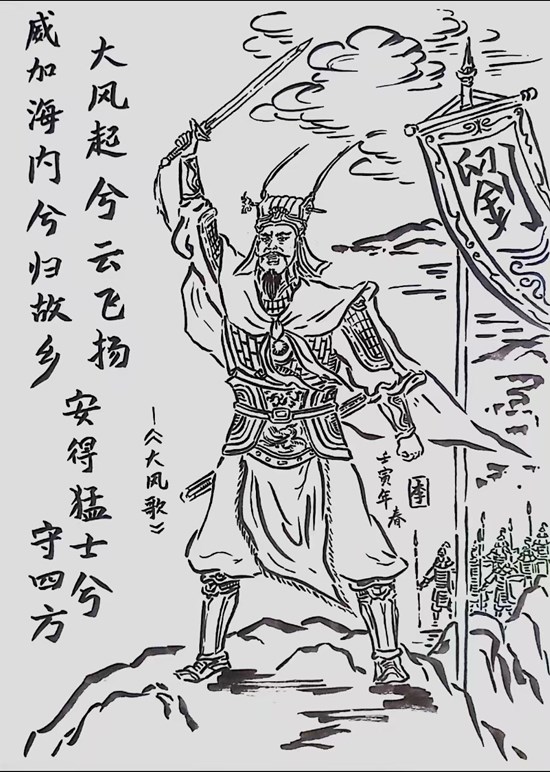 大风起兮云飞扬
威加海内兮归故乡
安得猛士兮
守四方
—《大风歌》
劉
壬寅年春